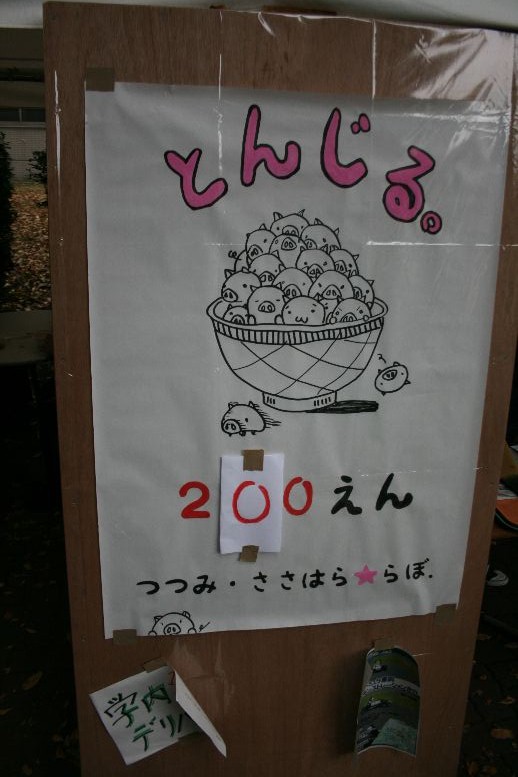 とんじる。
200えん
つつみ・ささはら★らぼ.
学内
デリバ